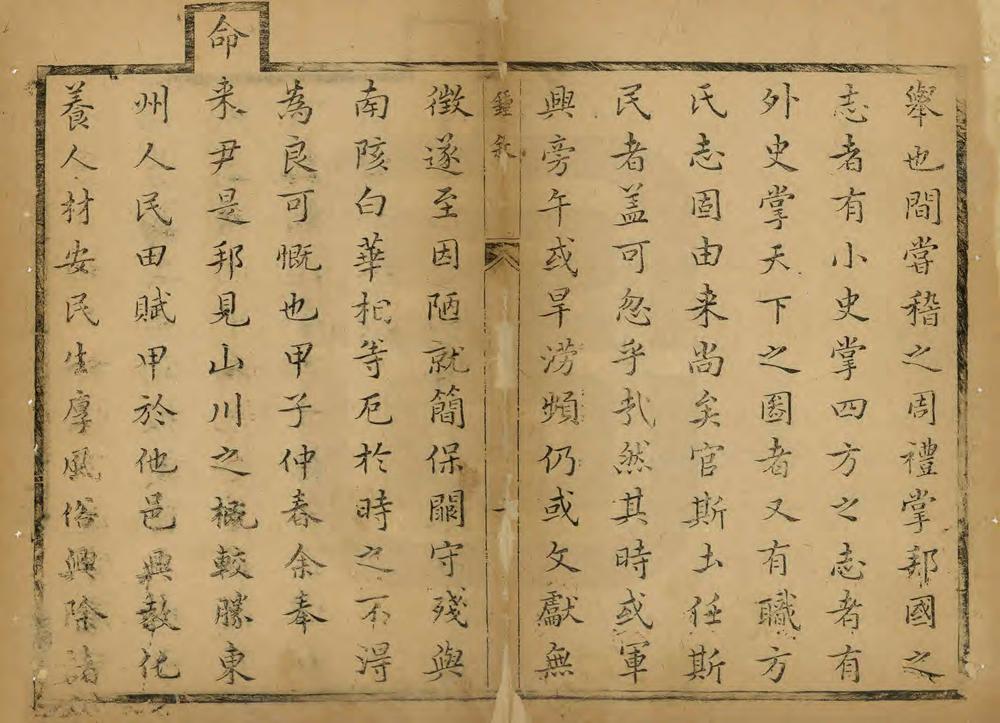 舉也間嘗稽之周禮掌邦國之
志者有小史掌四方之志者有
外史掌天下之圖者又有職方
氏志固由来尚矣官斯土任斯
民者盖可忽乎哉然其時或軍
興旁午或旱澇頻仍或文獻無
鍾叙
一
徴遂至因陋就簡保闕守殘與
南陔白華相等厄於時之不淂
為良可慨也甲子仲春余奉
命来尹是邦見山川之概較勝東
州人民田賦甲於他邑興敎化
養人材安民生厚風俗興除諸